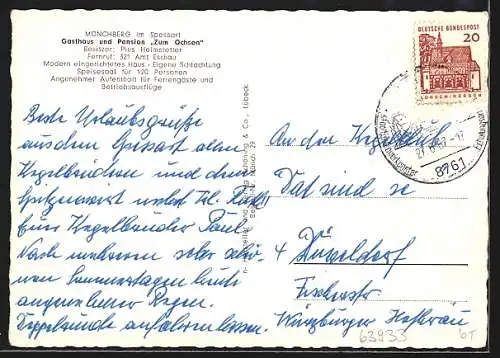 MÖNCHBERG im Spessart
Gasthaus und Pension „Zum Ochsen"
Besitzer: Pius Helmstetter
Fernruf: 321 Amt Eschau
Modern eingerichtetes Haus - Eigene Schlachtung
Speisesaal für 120 Personen
Angenehmer Aufenthalt für Feriengäste und
Betriebsausflüge
DEUTSCHE BUNDESPOST
20
LORSCH/HESSEN
8761
Beste Urlaubsgrüße
aus dem Spessart allen
Kegelbrüdern und dem
Spitzenwirt
Euer Kegelbruder Paul
Nach mehreren sehr schö-
nen Sommertagen heute
angenehmer Regen.
An den Kegelclub
Dat sind se
4 Düsseldorf
Fischerstr
Würzburger Hofbräu
63933